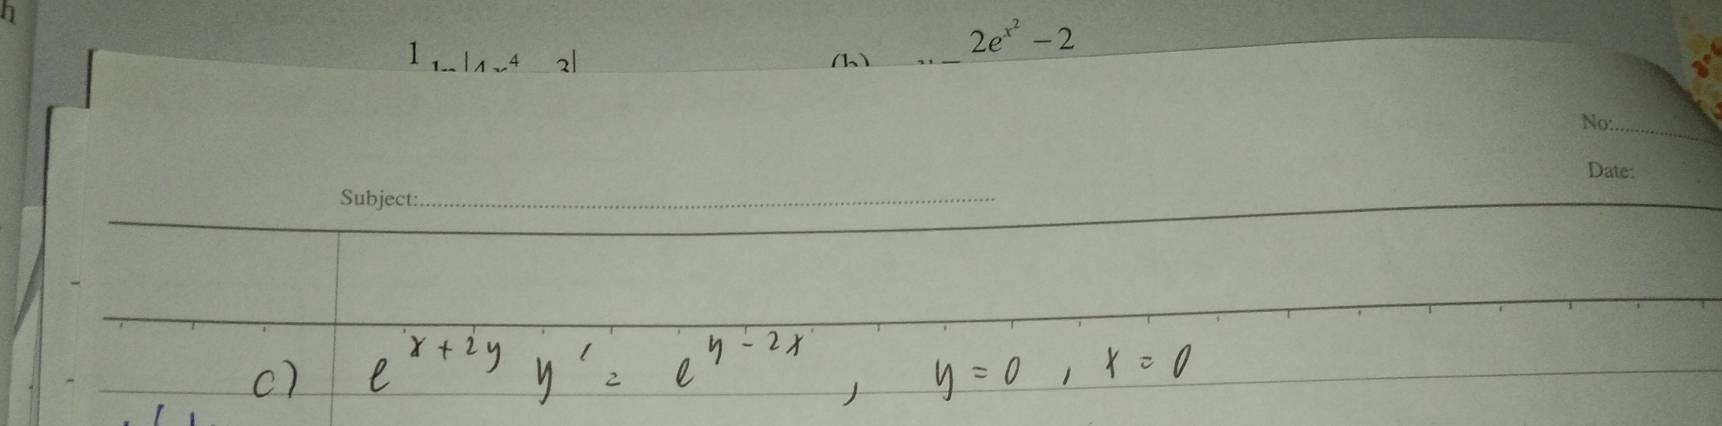 h
1 ln |4x⁴ 3| (h) 2e^{x²} − 2
No:
Date:
Subject:
c) e^{x + 2y} y' = e^{y − 2x}, y = 0, x = 0